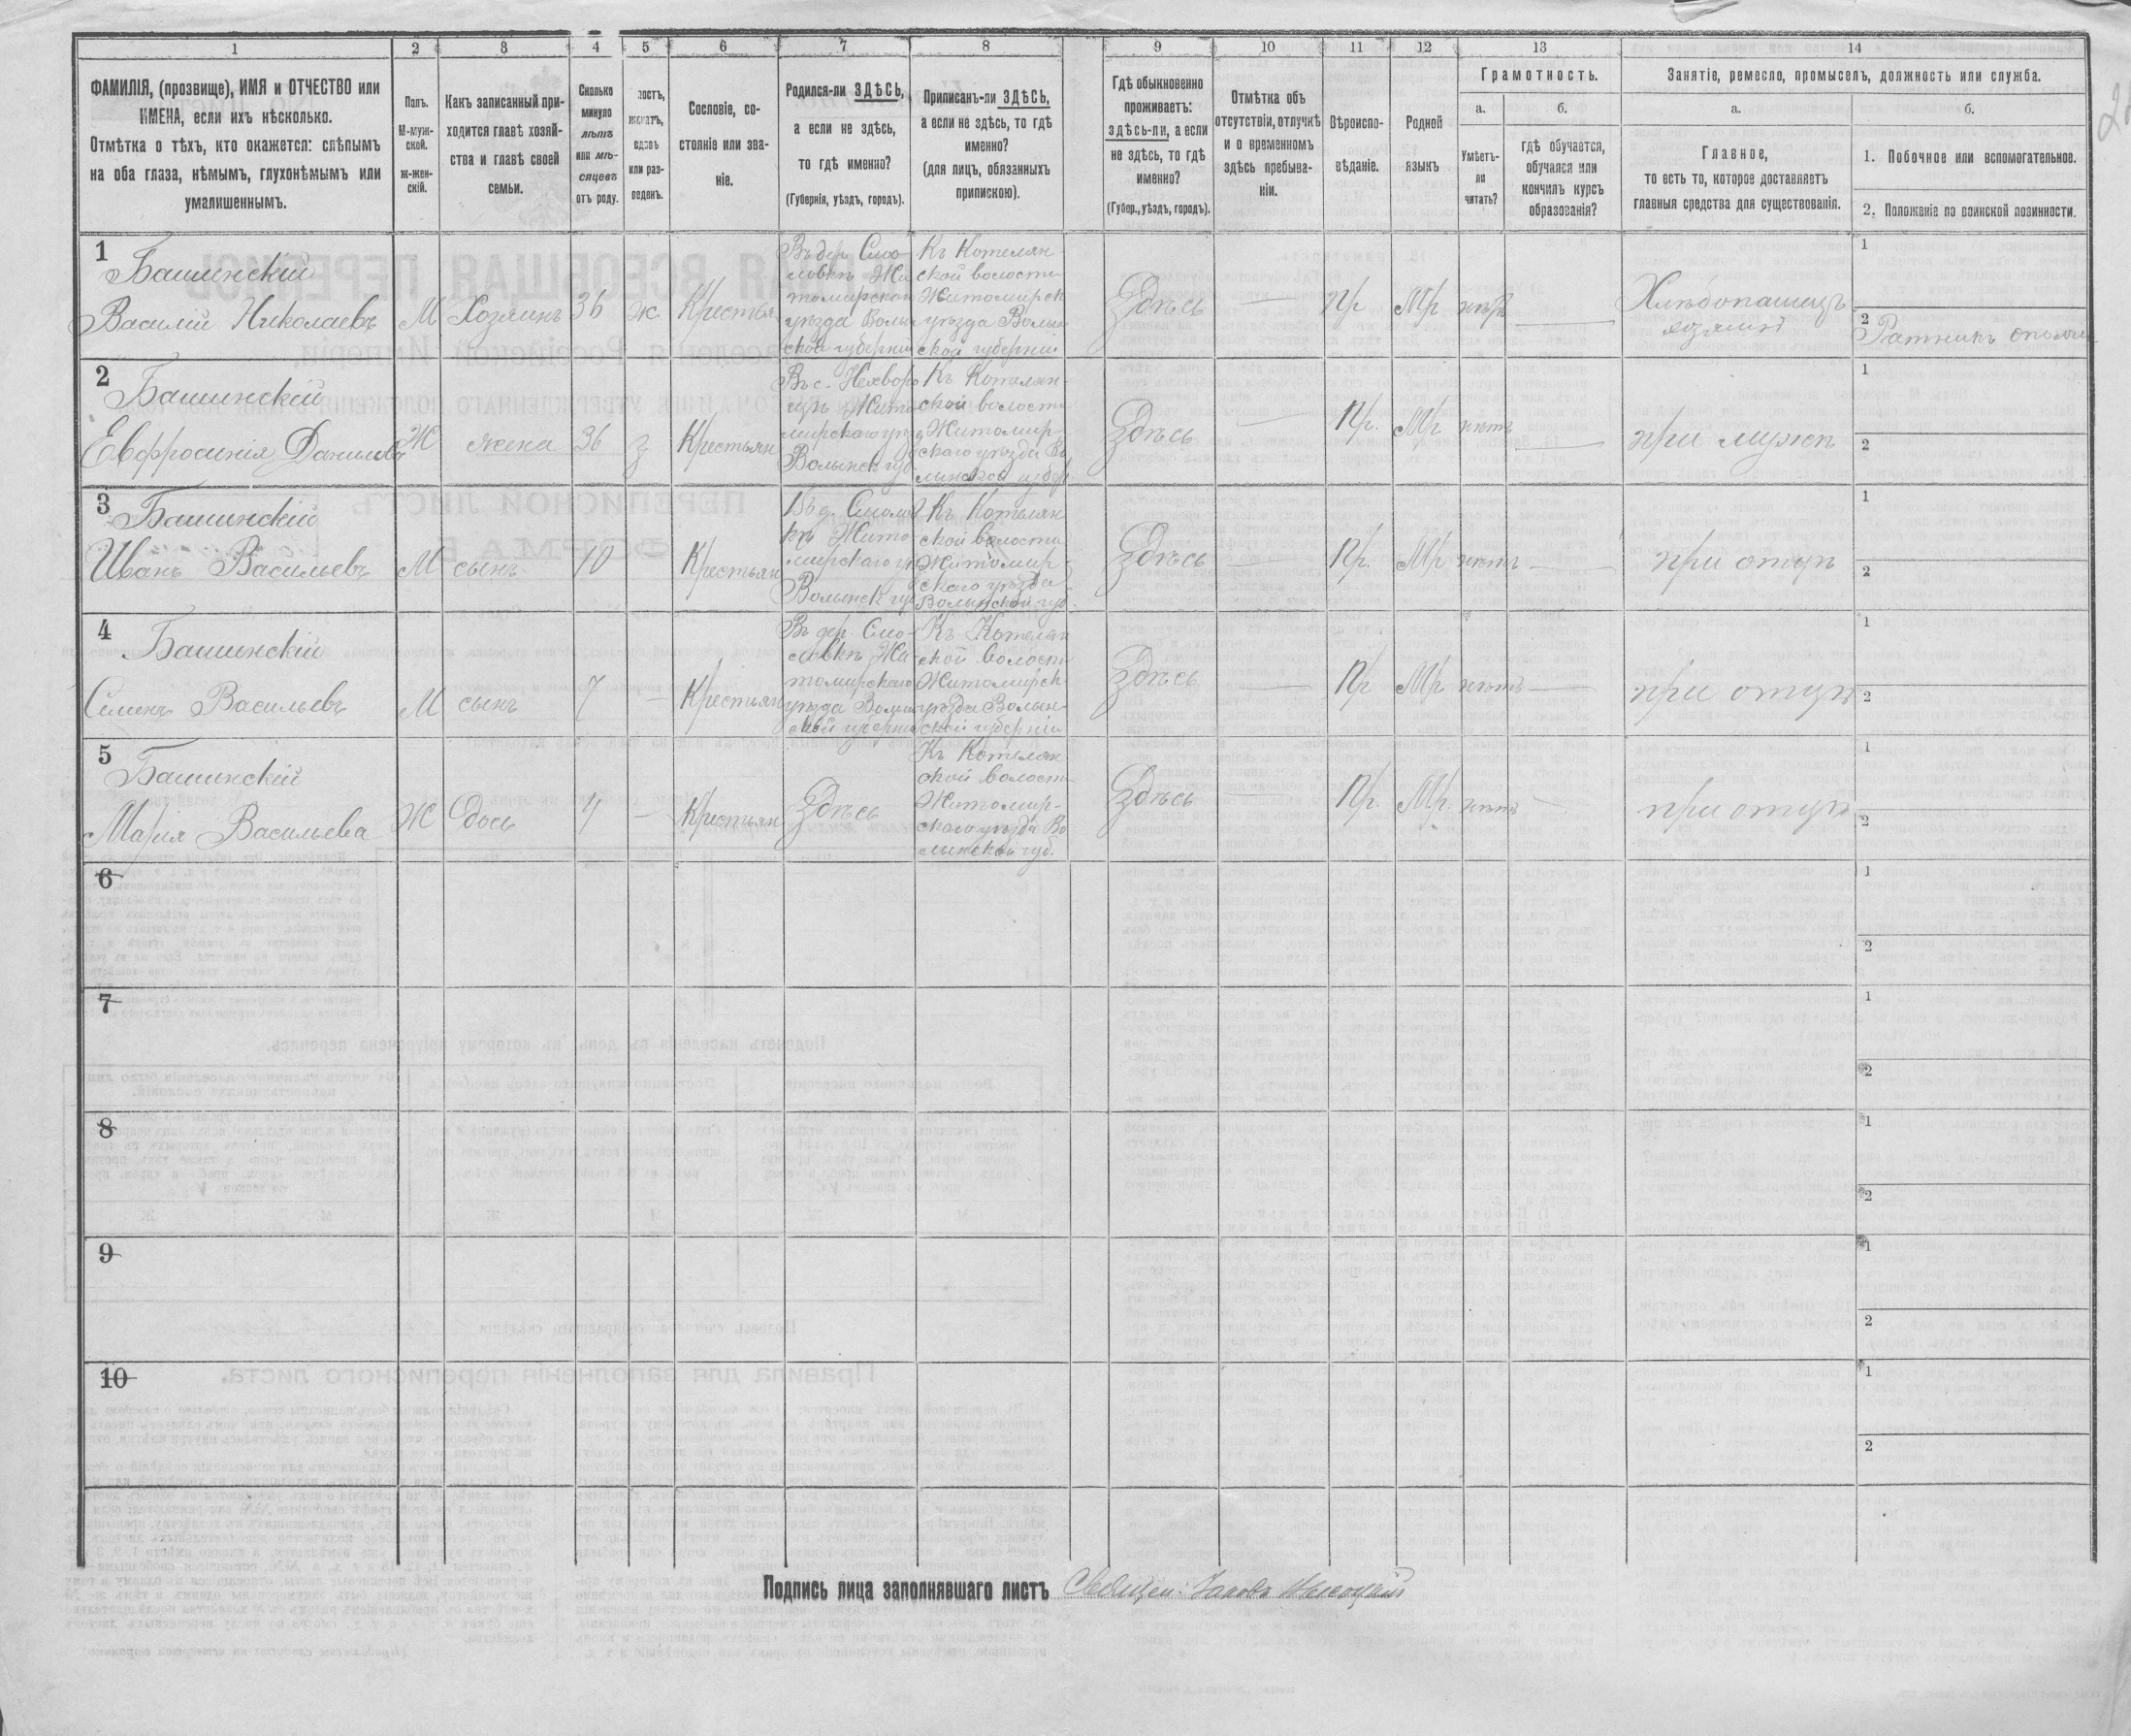 1 2 3 4 5 6 7 8 9 10 11 12 13 14
ФАМИЛІЯ, (прозвище), ИМЯ и ОТЧЕСТВО или
ИМЕНА, если ихъ нѣсколько.
Отмѣтка о тѣхъ, кто окажется: слѣпымъ
на оба глаза, нѣмымъ, глухонѣмымъ или
умалишеннымъ.
Полъ.
М-муж-
ской.
ж-жен-
скій.
Какъ записанный при-
ходится главѣ хозяй-
ства и главѣ своей
семьи.
Сколько
минуло
лѣтъ
или мѣ-
сяцевъ
отъ роду.
ностъ,
женатъ,
вдовъ
или раз-
веденъ.
Сословіе, со-
стояніе или зва-
ніе.
Родился-ли ЗДѢСЬ,
а если не здѣсь,
то гдѣ именно?
(Губернія, уѣздъ, городъ).
Приписанъ-ли ЗДѢСЬ,
а если не здѣсь, то гдѣ
именно?
(для лицъ, обязанныхъ
припискою).
Гдѣ обыкновенно
проживаетъ:
здѣсь-ли, а если
не здѣсь, то гдѣ
именно?
(Губер., уѣздъ, городъ).
Отмѣтка объ
отсутствіи, отлучкѣ
и о временномъ
здѣсь пребыва-
ніи.
Вѣроиспо-
вѣданіе.
Родной
языкъ
Грамотность.
а. б.
Умѣетъ-
ли
читать?
гдѣ обучается,
обучался или
кончилъ курсъ
образованія?
Занятіе, ремесло, промыселъ, должность или служба.
а. б.
Главное,
то есть то, которое доставляетъ
главныя средства для существованія.
1. Побочное или вспомогательное.
2. Положеніе по воинской повинности.
1
Башинскій
Василій Николаевъ
М
Хозяинъ
36
ж
Крестья
Въ дер. Смо-
ловкѣ Жи
томирскаго
уѣзда Волын
ской губерніи
Къ Котелян-
ской волости
Житомирск
уѣзда Волын
ской губерніи
Здѣсь
—
Пр
Мр
нѣтъ
—
Хлѣбопашецъ
хозяинъ
1
2
Ратникъ ополч
2
Башинскій
Евфросинія Данилова
Ж
жена
36
з
Крестьян
Въ с. Нехворо
щѣ Жито
мирскаго уѣз
Волынск губ.
Къ Котелян-
ской волости
Житомир-
скаго уѣзда Во
лынской губер
Здѣсь
—
Пр.
Мр
нѣтъ
—
при мужѣ
1
2
3
Башинскій
Иванъ Васильевъ
М
сынъ
10
Крестьян
Въ д. Смолов
кѣ Жито
мирскаго у
Волынск губ
Къ Котелян
ской волости
Житомир
скаго уѣзда
Волынской губ.
Здѣсь
—
Пр.
Мр
нѣтъ
—
при отцѣ
1
2
4
Башинскій
Семенъ Васильевъ
М
сынъ
7
—
Крестьян
Въ дер. Смо-
ловкѣ Жи
томирскаго
уѣзда Волын
ской губерніи
Къ Котелян
ской волост
Житомирск
уѣзда Волын-
ской губерніи
Здѣсь
—
Пр
Мр
нѣтъ
—
при отцѣ
1
2
5
Башинскій
Марія Васильева
Ж
Дочь
4
—
Крестьян
Здѣсь
Къ Котелян
ской волости
Житомир-
скаго уѣзда Во
лынской губ.
Здѣсь
—
Пр.
Мр.
нѣтъ
—
при отцѣ
1
2
6
1
2
7
1
2
8
1
2
9
1
2
10
1
2
Подпись лица заполнявшаго листъ Священ.